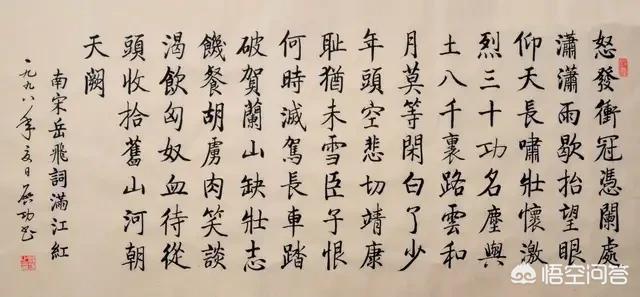 怒發衝冠憑闌處
瀟瀟雨歇抬望眼
仰天長嘯壯懷激
烈三十功名塵與
土八千裏路雲和
月莫等閑白了少
年頭空悲切靖康
耻猶未雪臣子恨
何時滅駕長車踏
破賀蘭山缺壯志
饑餐胡虜肉笑談
渴飲匈奴血待從
頭收拾舊山河朝
天闕
南宋岳飛詞滿江紅
一九九八年夏日启功书
悟空问答